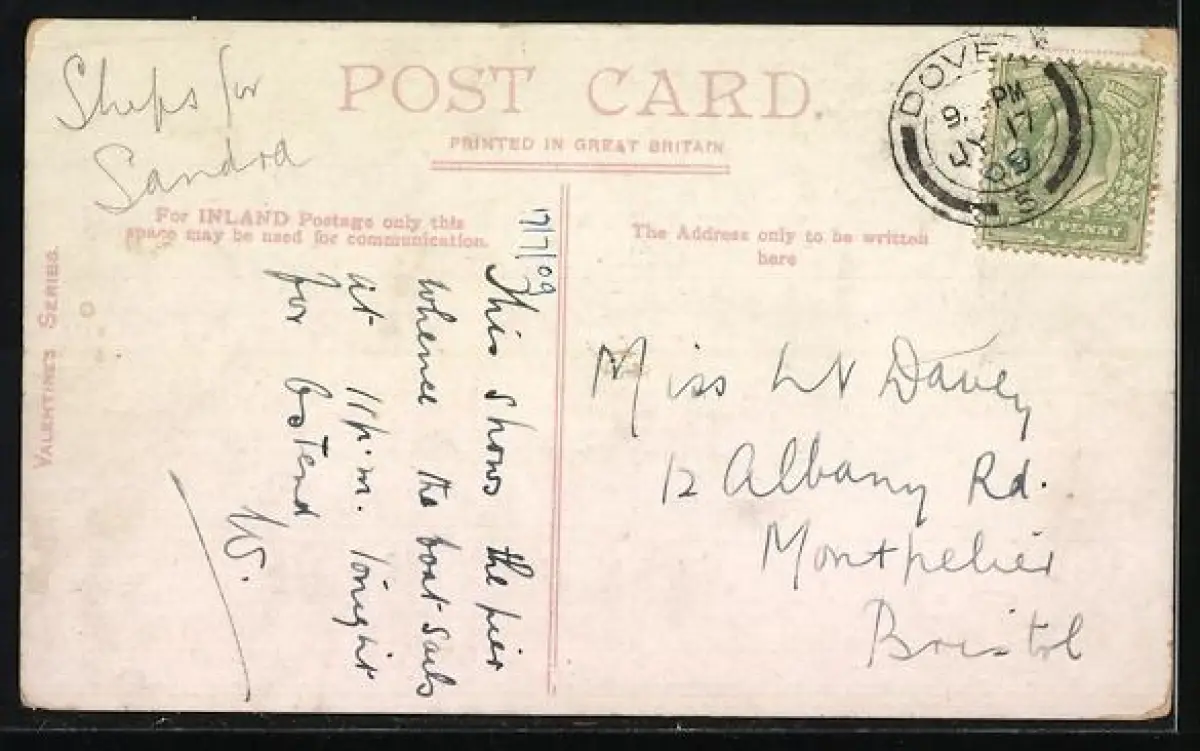 Sheps for
Sandra
POST CARD.
PRINTED IN GREAT BRITAIN
For INLAND Postage only this
space may be used for communication.
The Address only to be written
here
VALENTINE'S SERIES.
DOVER
9. PM
JY 17
09
5
HALF PENNY
17/7/09
This shows the pier
whence the boat sails
at 11p.m. tonight
for Ostend
W.
Miss Davey
12 Albany Rd.
Montpelier
Bristol